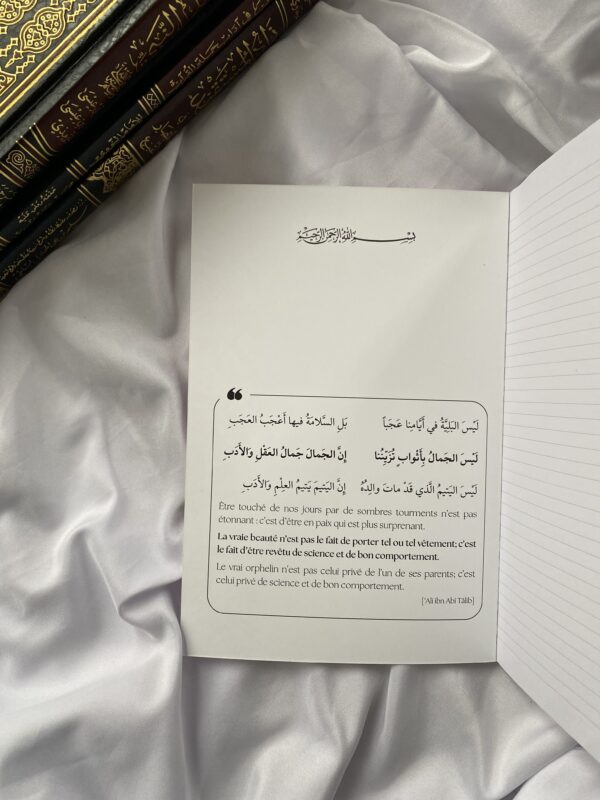 بِسْمِ اللهِ الرَّحْمٰنِ الرَّحِيْمِ
لَيْسَ البَلِيَّةُ في أَيَّامِنا عَجَباً بَلِ السَّلامَةُ فيها أَعْجَبُ العَجَبِ
لَيْسَ الجَمالُ بِأَثْوابٍ تُزَيِّنُنا إِنَّ الجَمالَ جَمالُ العَقْلِ وَالأَدَبِ
لَيْسَ اليَتيمُ الَّذي قَدْ ماتَ والِدُهُ إِنَّ اليَتيمَ يَتيمُ العِلْمِ وَالأَدَبِ
Être touché de nos jours par de sombres tourments n'est pas
étonnant : c'est d'être en paix qui est plus surprenant.
La vraie beauté n'est pas le fait de porter tel ou tel vêtement; c'est
le fait d'être revêtu de science et de bon comportement.
Le vrai orphelin n'est pas celui privé de l'un de ses parents; c'est
celui privé de science et de bon comportement.
['Ali ibn Abi Tâlib]